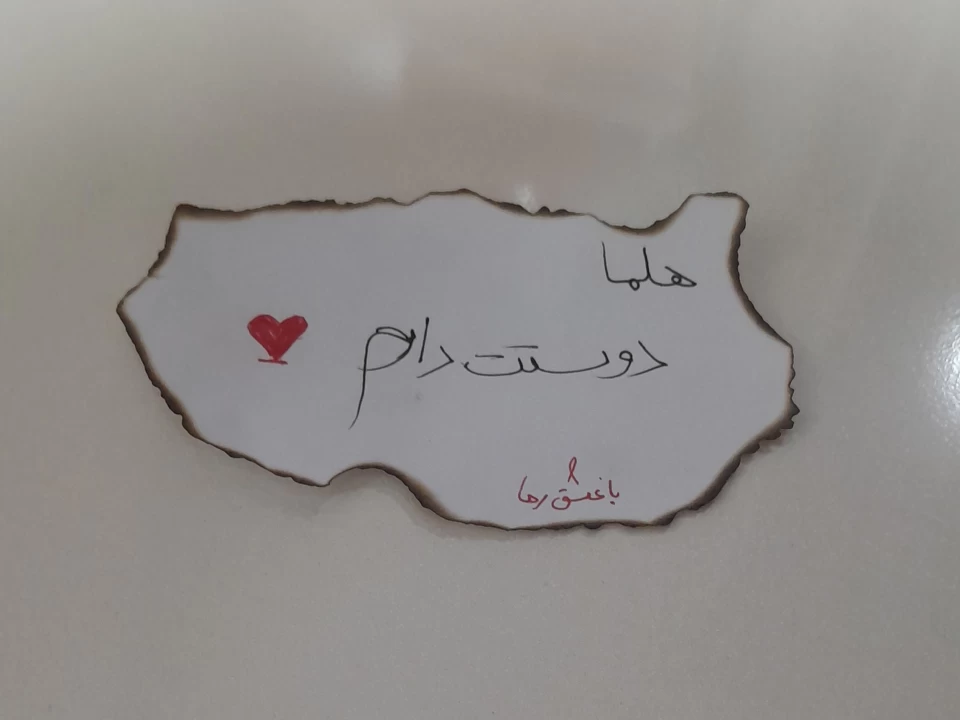 هلما
دوستت دارم
با عشق رها